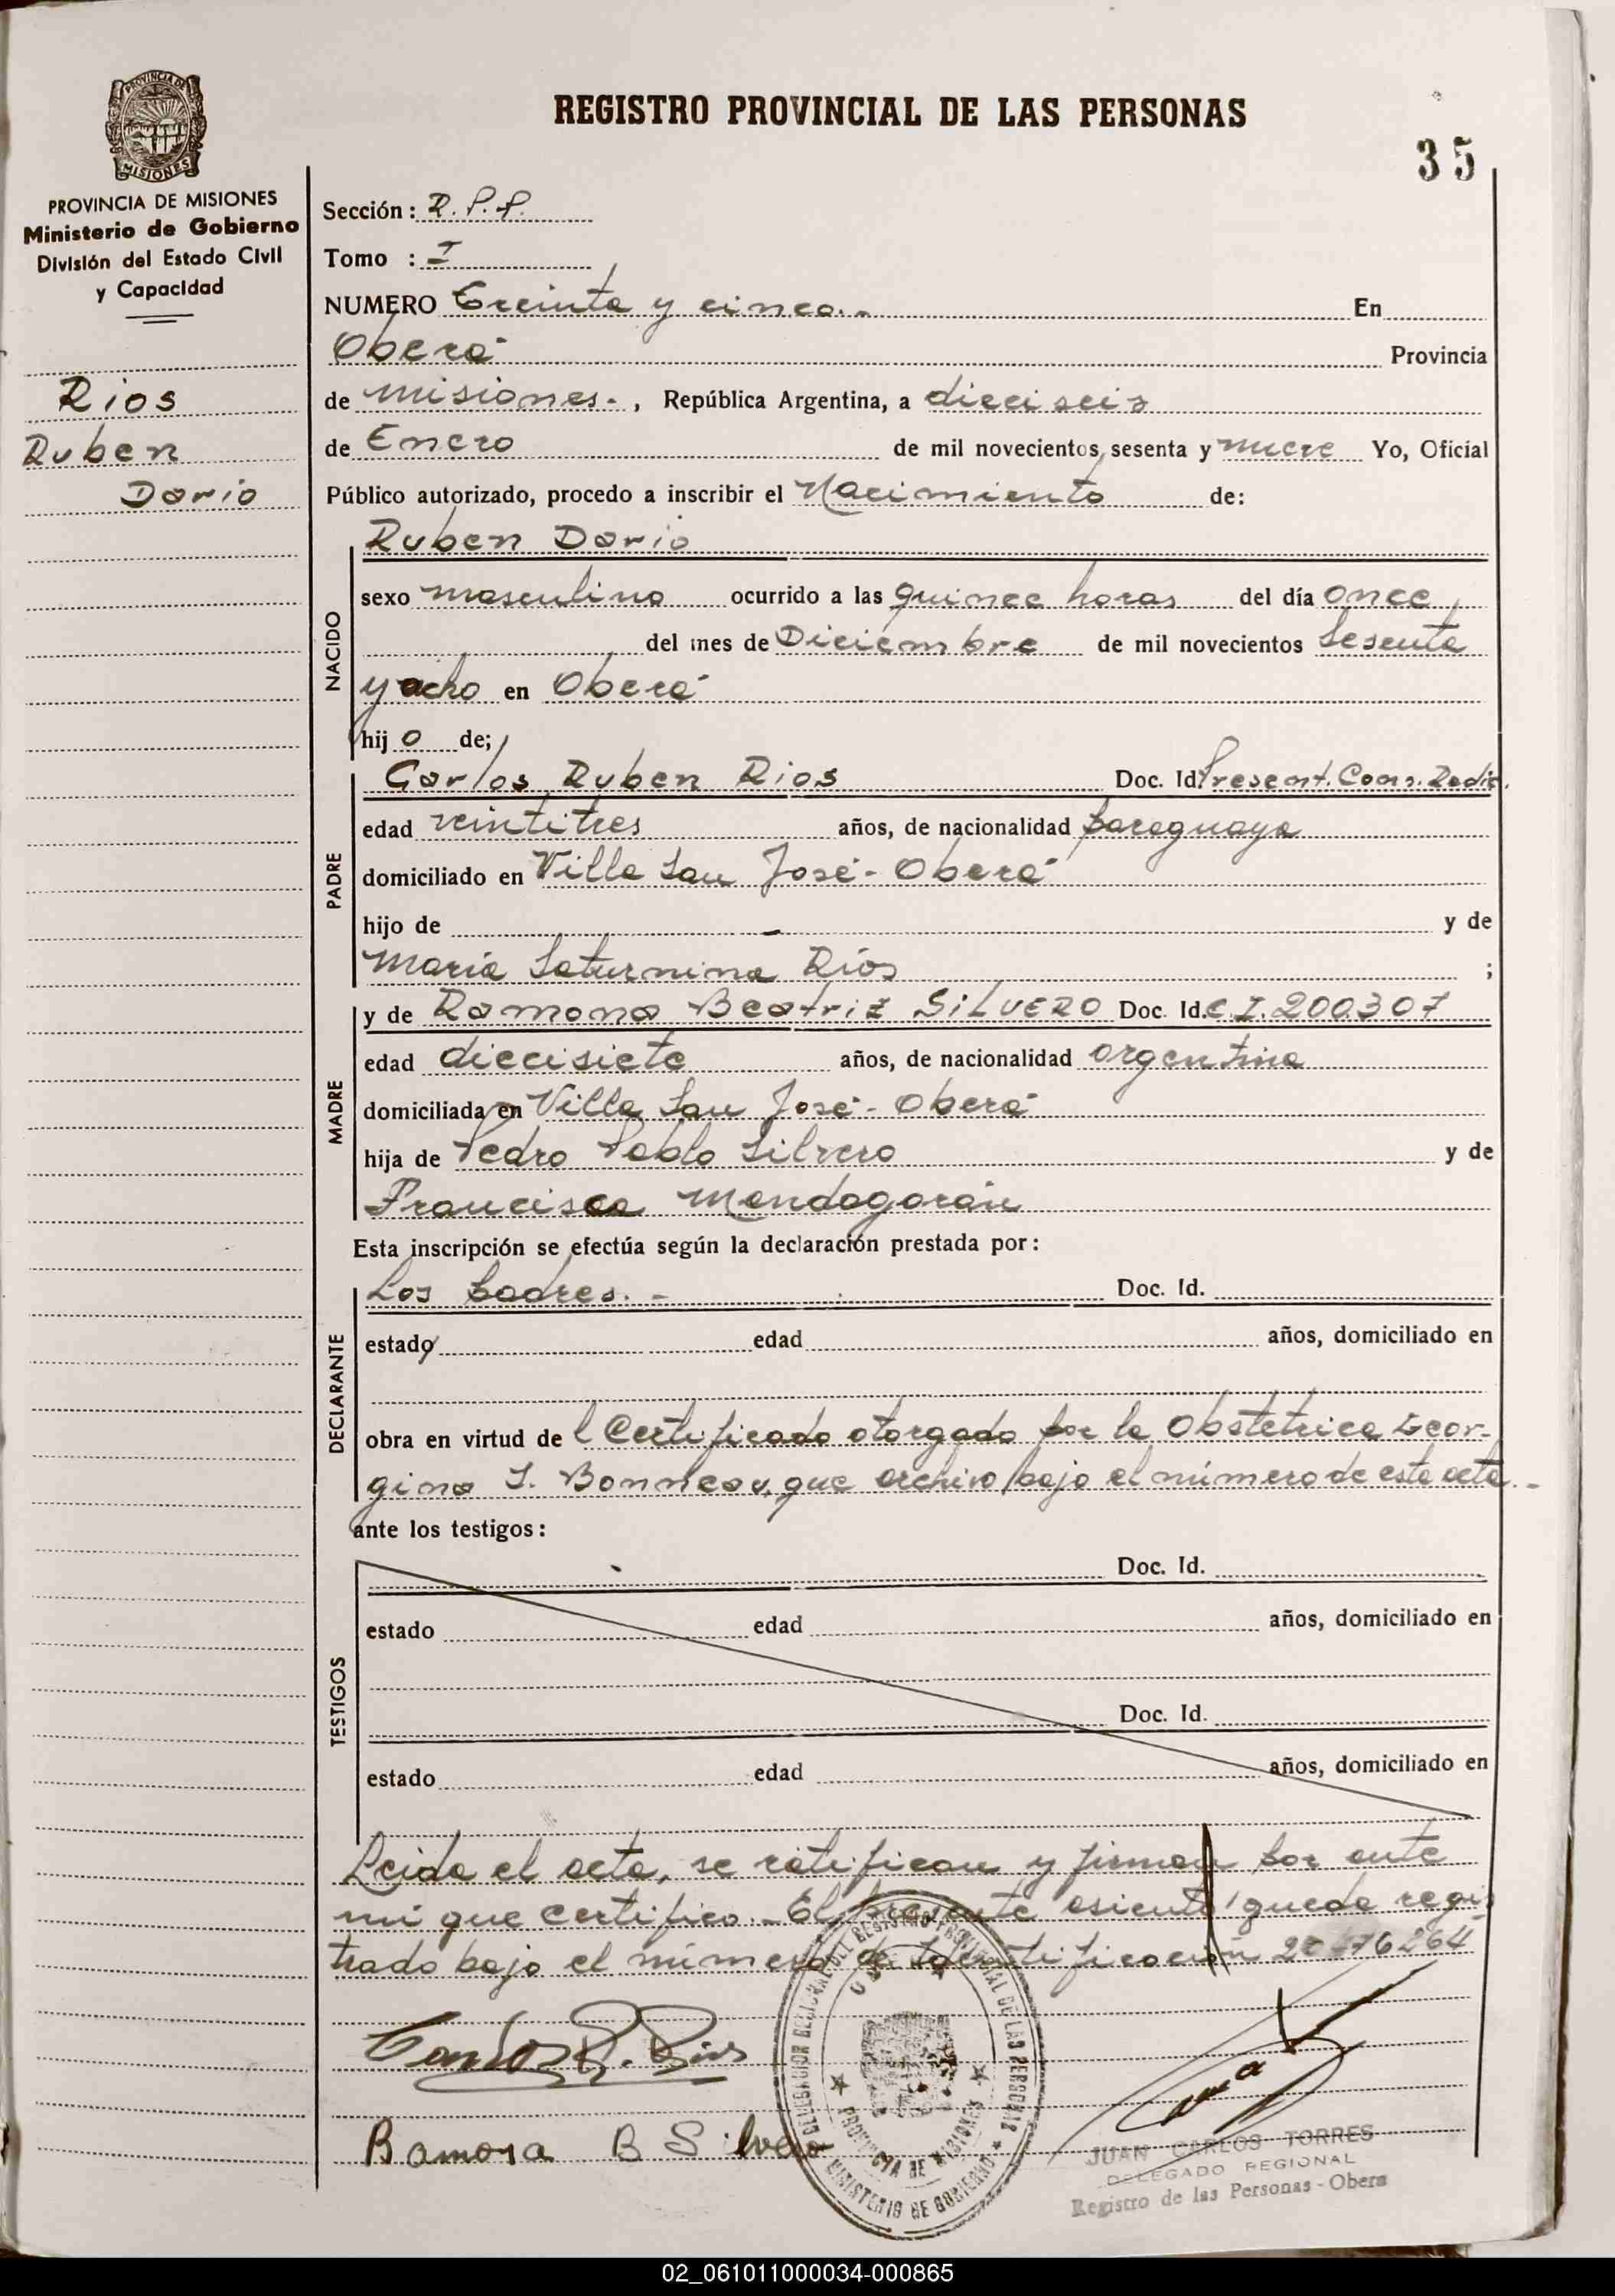 PROVINCIA DE
MISIONES
PROVINCIA DE MISIONES
Ministerio de Gobierno
División del Estado Civil
y Capacidad
Rios
Ruben
Dario
REGISTRO PROVINCIAL DE LAS PERSONAS
35
Sección: R.P.P.
Tomo : I
NUMERO Treinta y cinco.- En
Oberá Provincia
de misiones.-, República Argentina, a dieciseis
de Enero de mil novecientos, sesenta y nueve Yo, Oficial
Público autorizado, procedo a inscribir el Nacimiento de:
NACIDO
Ruben Dario
sexo masculino ocurrido a las quince horas del día once
del mes de Diciembre de mil novecientos Sesenta
y ocho en Oberá
hij o de;
PADRE
Carlos Ruben Rios Doc. Id. Present. Cons. Radic.
edad veintitres años, de nacionalidad paraguaya
domiciliado en Villa San José - Oberá
hijo de - y de
Maria Saturnina Ríos ;
MADRE
y de Ramona Beatriz SILVERO Doc. Id. C.I. 200307
edad diecisiete años, de nacionalidad argentina
domiciliada en Villa San José - Oberá
hija de Pedro Pablo Silvero y de
Francisca Mandagarán
Esta inscripción se efectúa según la declaración prestada por:
DECLARANTE
Los padres. - Doc. Id.
estado edad años, domiciliado en
obra en virtud de l Certificado otorgado por la Obstetrica Geor-
gina S. que archivo bajo el número de esta acta.-
ante los testigos:
TESTIGOS
Doc. Id.
estado edad años, domiciliado en
Doc. Id.
estado edad años, domiciliado en
Leida el acta, se ratifican y firman por ante
mi que certifico.- El presente asiento queda regis
trado bajo el número de Identificación
Carlos R. Rios
Ramona B Silvero
DELEGACION REGIONAL DEL REGISTRO PROVINCIAL DE LAS PERSONAS
PROVINCIA DE MISIONES
MINISTERIO DE GOBIERNO
JUAN CARLOS TORRES
DELEGADO REGIONAL
Registro de las Personas - Obera
02_061011000034-000865